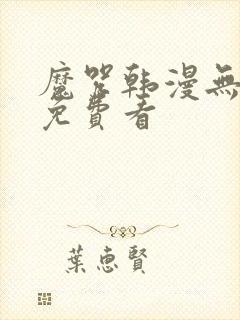 魔咒韩漫無
免費看
葉惠賢